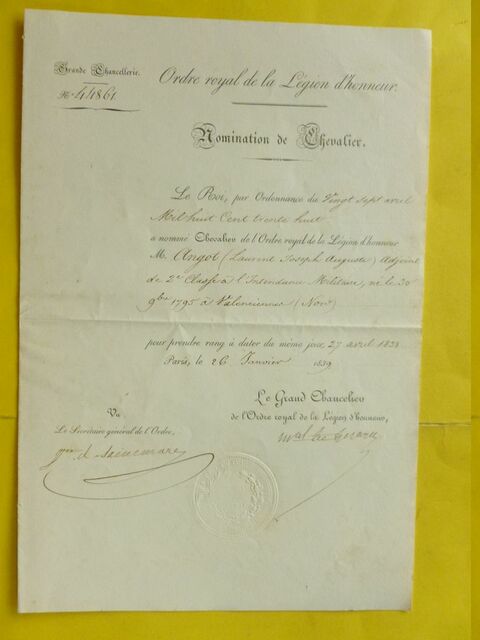 Grande Chancellerie.
Ordre royal de la Légion d'honneur.
N° 44861
Nomination de Chevalier.
Le Roi, par Ordonnance du Vingt sept avril
Mil huit Cent trente huit
a nommé Chevalier de l'Ordre royal de la Légion d'honneur
M. Angot (Laurent Joseph Auguste) Adjoint
de 2e Classe à l'Intendance Militaire, né le 30
9bre 1795 à Valenciennes (Nord)
pour prendre rang à dater du même jour 27 avril 1838
Paris, le 26 Janvier 1839
Le Grand Chancelier
de l'Ordre royal de la Légion d'honneur,
Vu
Le Secrétaire général de l'Ordre,
Mal